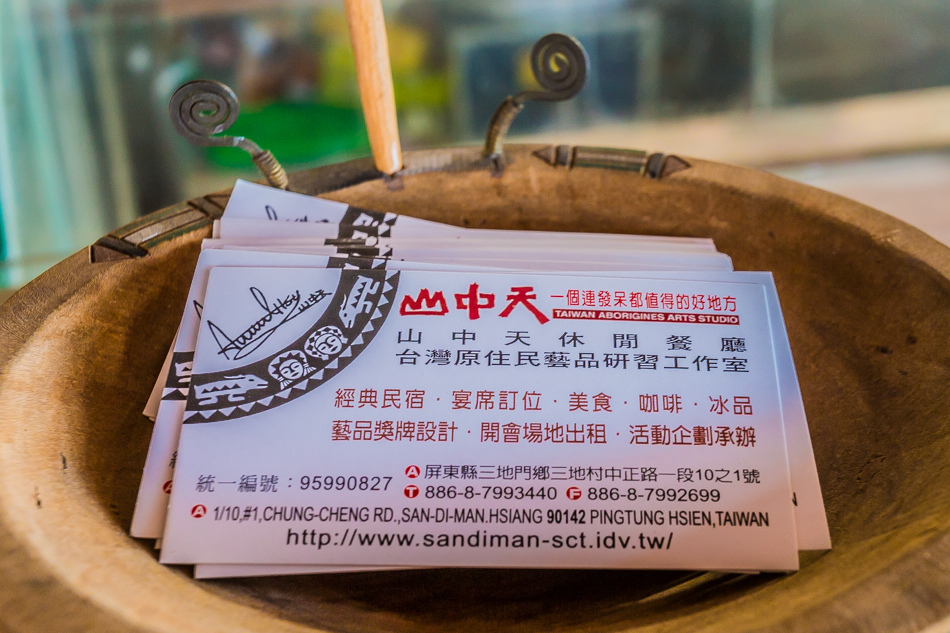 山中天 一個連發呆都值得的好地方
TAIWAN ABORIGINES ARTS STUDIO
山中天休閒餐廳
台灣原住民藝品研習工作室
經典民宿·宴席訂位·美食·咖啡·冰品
藝品獎牌設計·開會場地出租·活動企劃承辦
統一編號：95990827
A 屏東縣三地門鄉三地村中正路一段10之1號
T 886-8-7993440 F 886-8-7992699
A 1/10,#1,CHUNG-CHENG RD.,SAN-DI-MAN.HSIANG 90142 PINGTUNG HSIEN,TAIWAN
http://www.sandiman-sct.idv.tw/